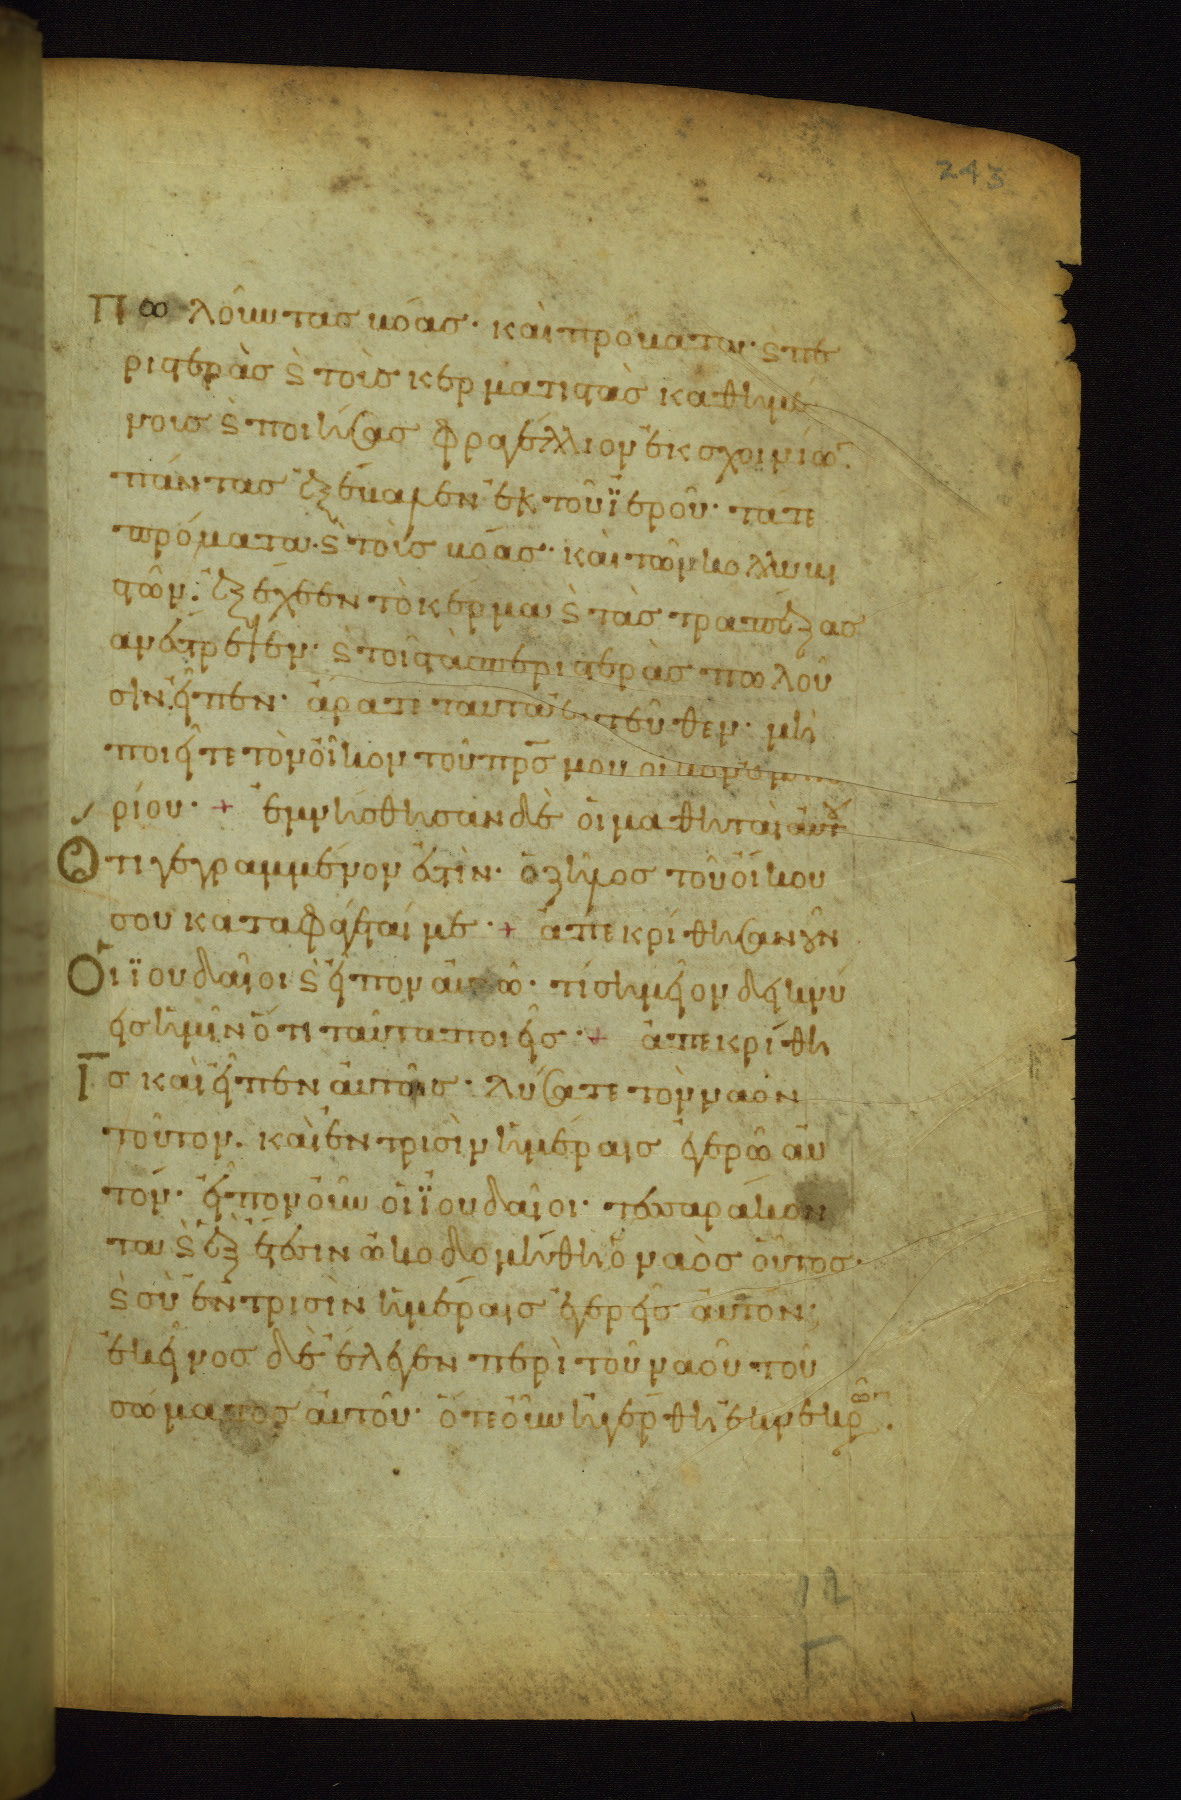 243
Πωλοῦντας βόας· καὶ πρόβατα· ϛ πε
ριστερὰς ϛ τοὺς κερματιστὰς καθημέ
νοις ϛ ποιήσας φραγέλλιον ἐκ σχοινίων
πάντας ἐξέβαλεν ἐκ τοῦ ἱεροῦ· τάτε
πρόβατα· ϛ τοὺς βόας· καὶ τῶν κολλυβι
στῶν· ἐξέχεεν τὸ κέρμα ϛ τὰς τραπέζας
ανέτρεψεν· ϛ τοῖς τὰς περιστερὰς πωλοῦ
σιν εἶπεν· ἄρατε ταῦτα ἐντεῦθεν· μὴ
ποιεῖτε τὸν οἶκον τοῦ πρσ μου οἶκον ἐμπο
ρίου· + ἐμνήσθησαν δὲ οἱ μαθηταὶ αὐτοῦ
Ὅτι γεγραμμένον ἐστὶν· ὁ ζῆλος τοῦ οἴκου
σου καταφάγεταί με· + ἀπεκρίθησαν οὖν
Οἱ ϊουδαῖοι ϛ εἶπον αὐτῶ· τί σημεῖον δεικνύ
εις ἡμῖν ὅτι ταῦτα ποιεῖς· + ἀπεκρίθη
Ις καὶ εἶπεν αὐτοῖς· λύσατε τὸν ναὸν
τοῦτον. καὶ ἐν τρισὶν ἡμέραις ἐγερῶ αὐ
τόν· εἶπον οὖν οἱ ϊουδαῖοι· τεσσαράκον
τα ϛ ἓξ ἔτεσιν ὠκοδομήθη ὁ ναὸς οὗτος·
ϛ σὺ ἐν τρισὶν ἡμέραις ἐγερεῖς αὐτόν;
ἐκεῖνος δὲ ἔλεγεν περὶ τοῦ ναοῦ τοῦ
σώματος αὐτοῦ· ὅτε οὖν ἠγέρθη ἐκ νεκρῶν.